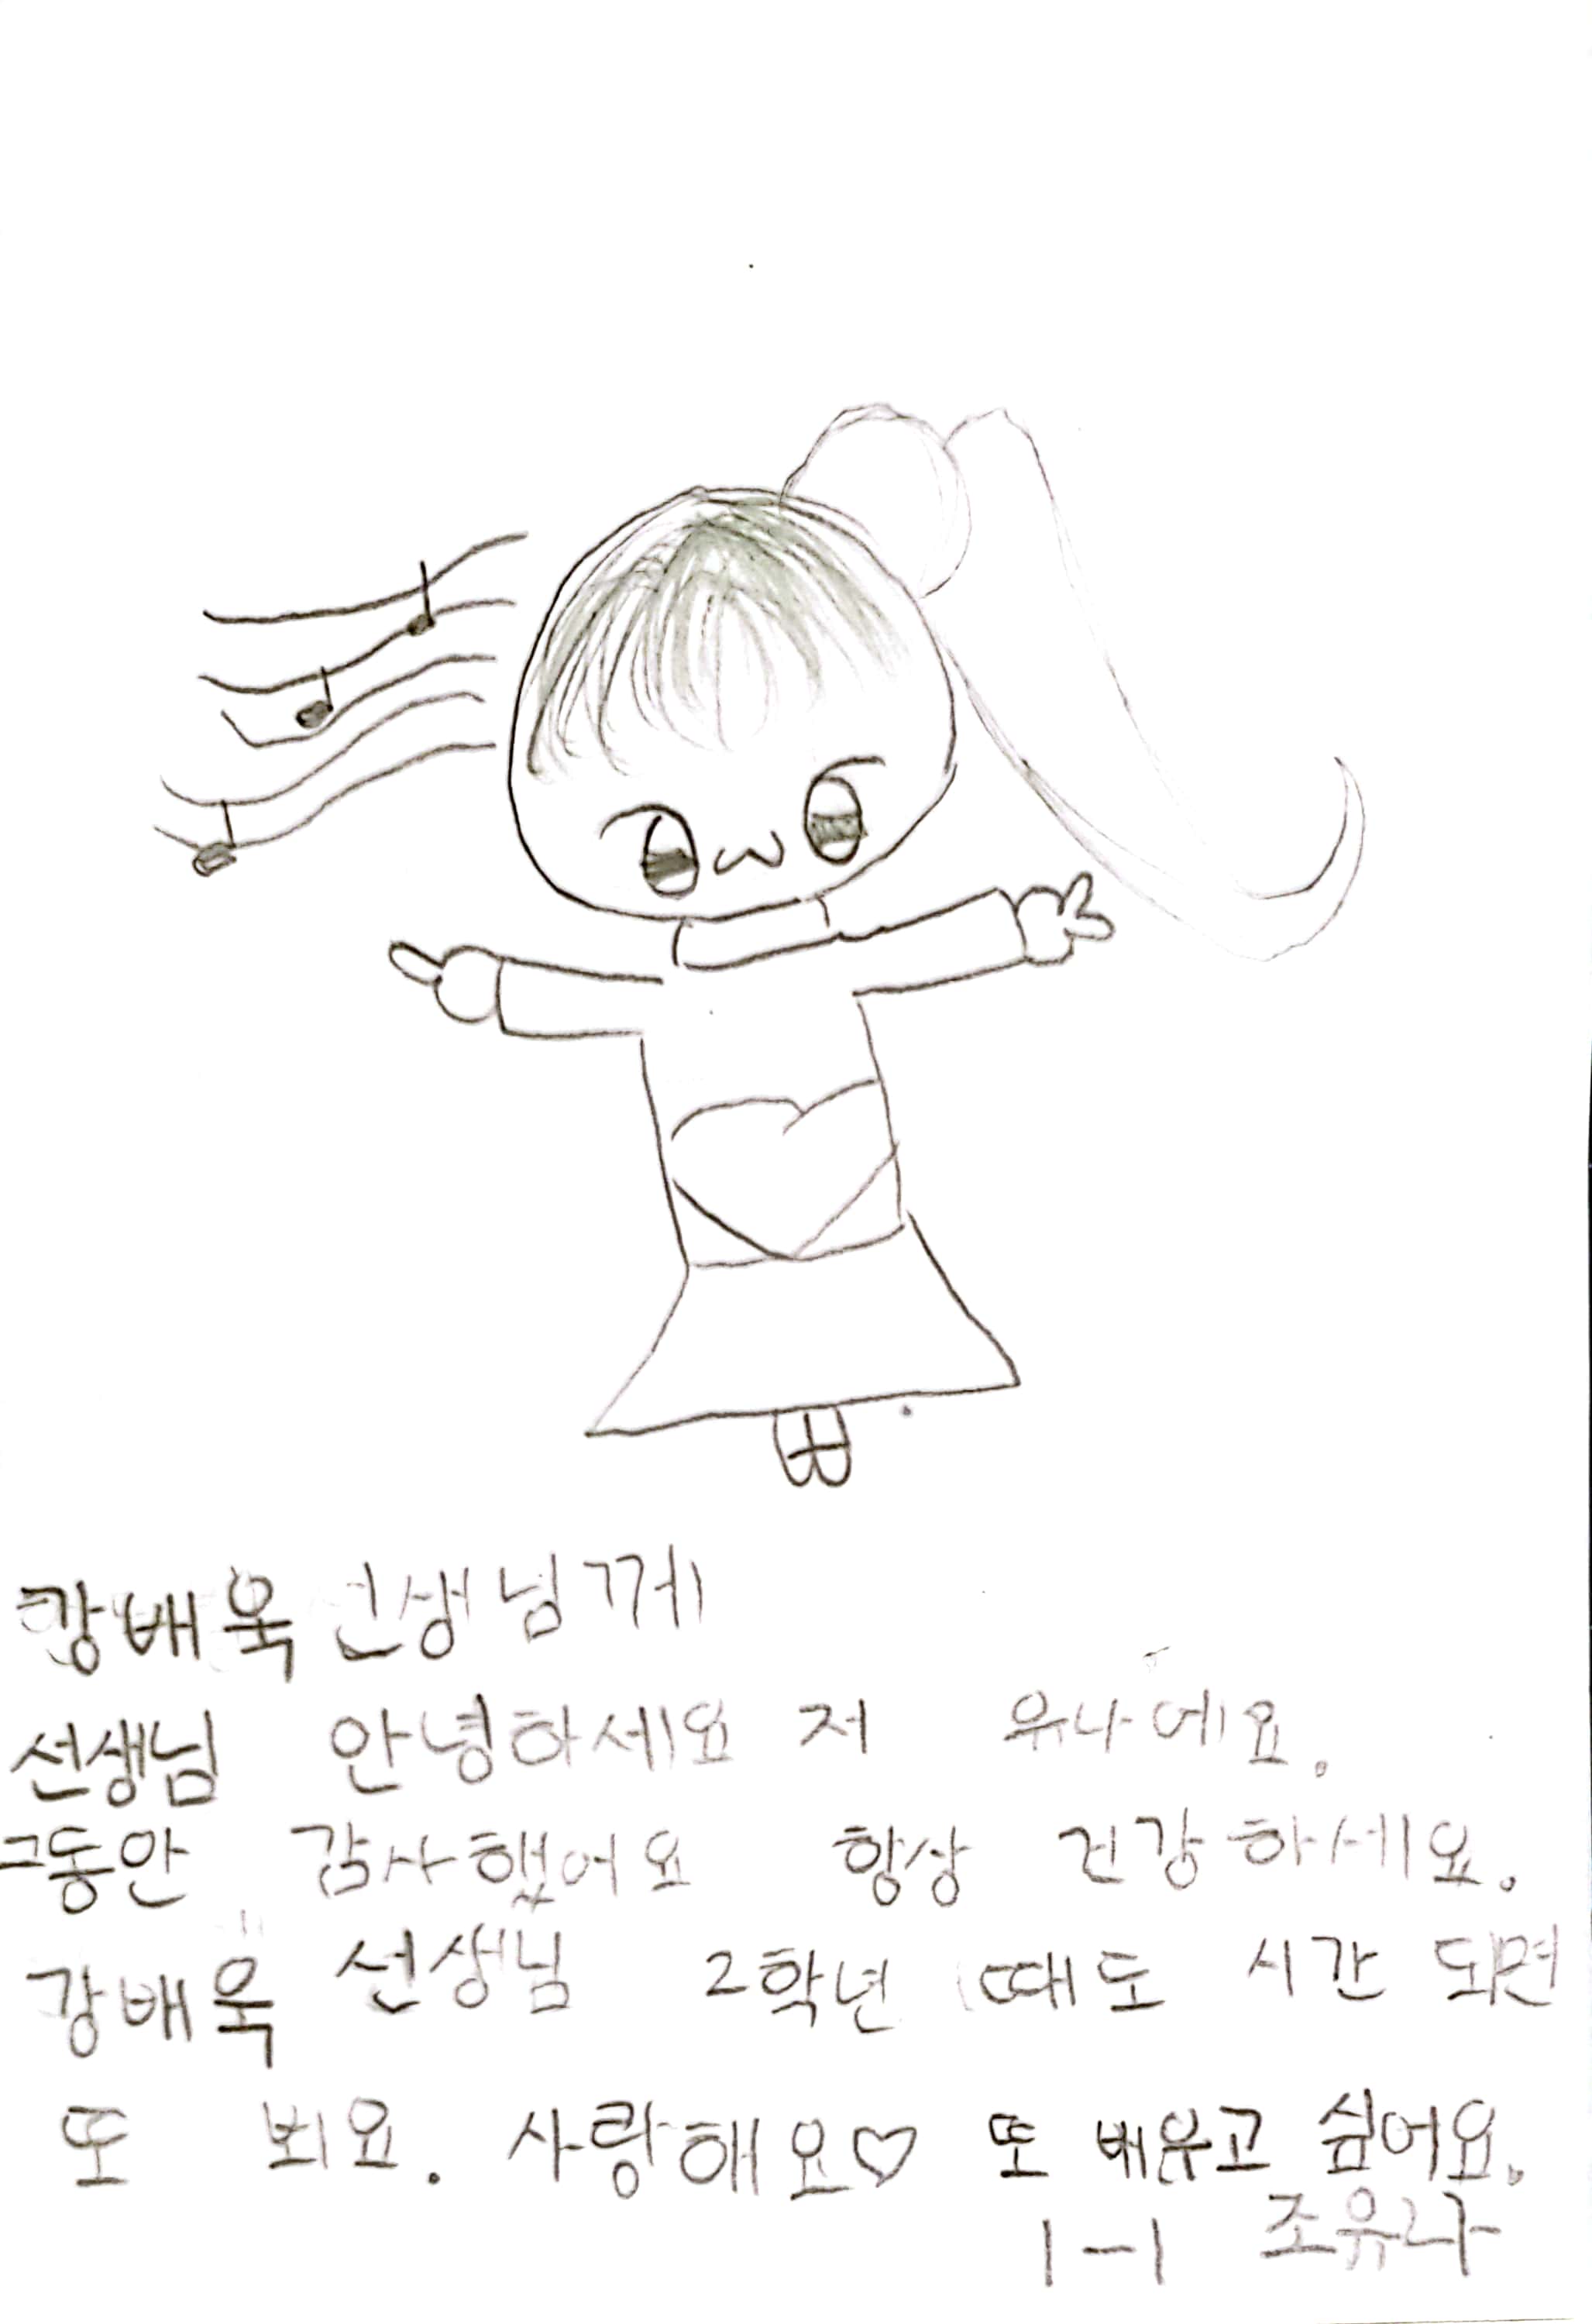 강배욱 선생님께
선생님 안녕하세요 저 유나예요.
그동안 감사했어요 항상 건강하세요.
강배욱 선생님 2학년 때도 시간 되면
또 뵈요. 사랑해요♡ 또 배유고 싶어요.
1-1 조유나